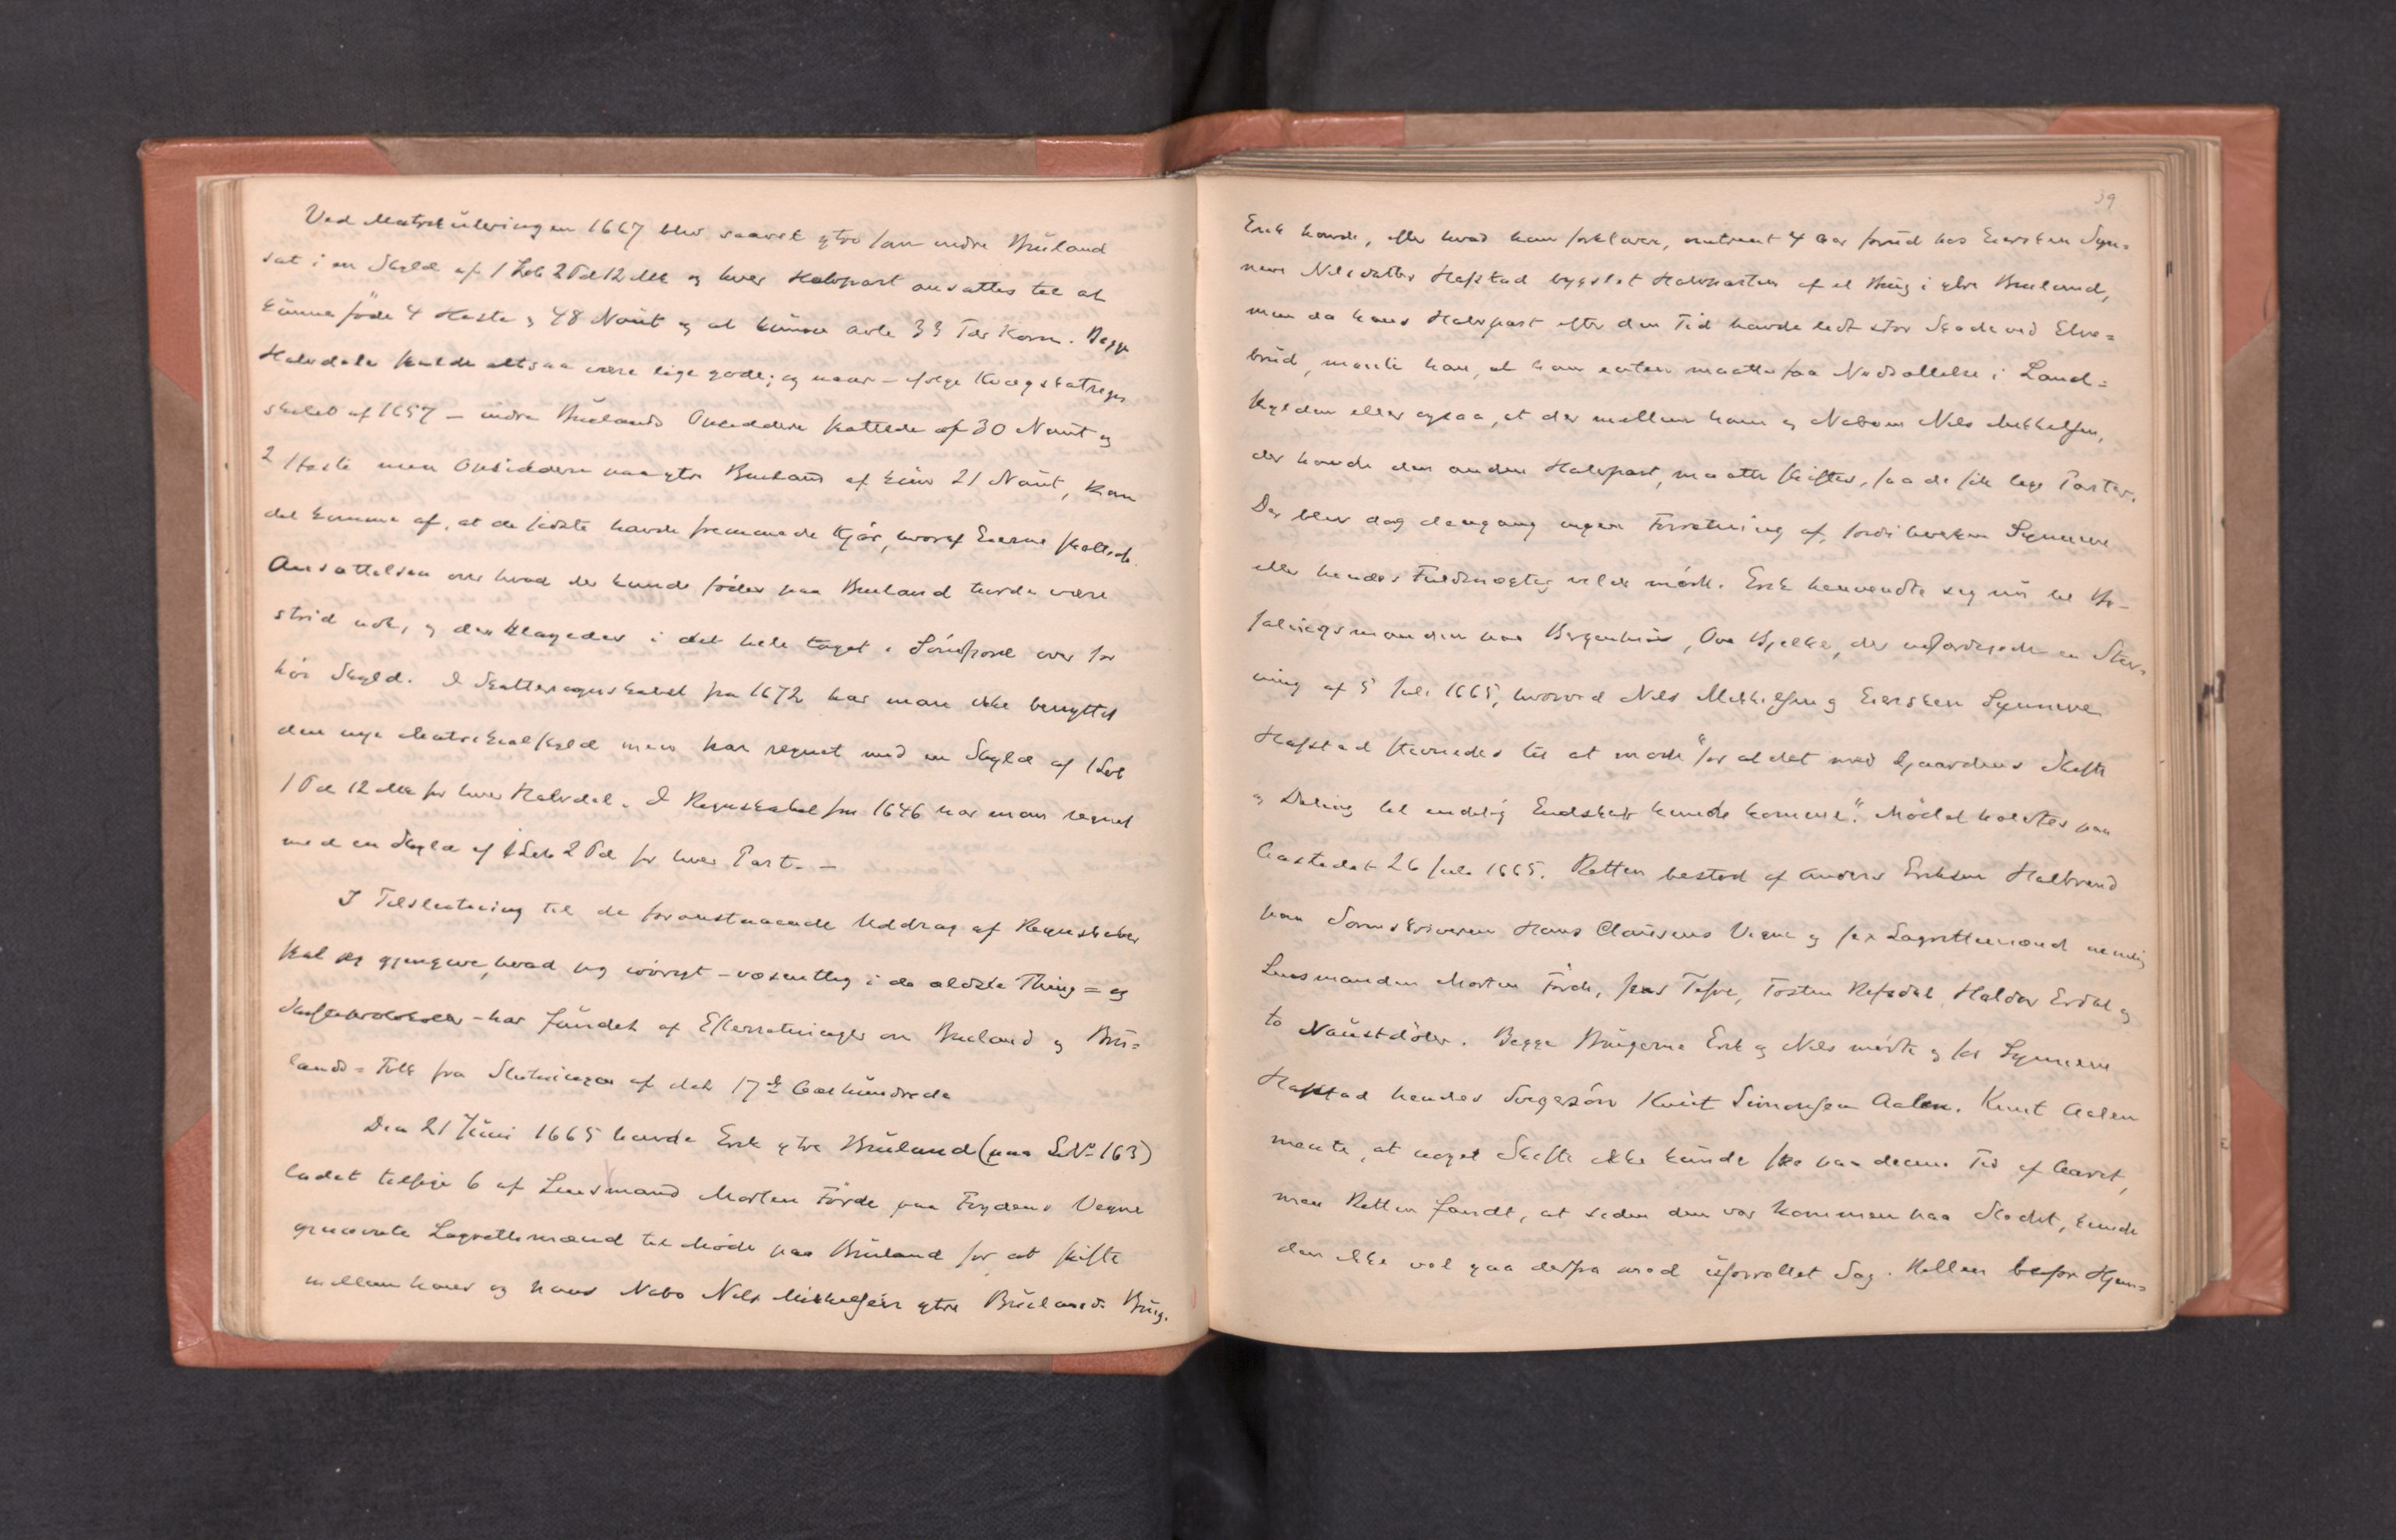 Ved Matrikuleringen 1667 blev saavel ytre som indre Bruland
sat i en Skyld af 1 Løb 2 Pd 12 Mk og hver Halvpart ansattes til at
kunne føde 4 Heste og 48 Naut og at kunne avle 33 Tdr Korn. Begge
Halvdele skulde altsaa være lige gode; og naar – ifølge Kvægskatregn
skabet af 1657 – indre Brulands Opsiddere skattede af 30 Naut og
2 Heste men Opsidderne paa ytre Bruland af kun 21 Naut, kan
det komme af, at de sidste havde fremmede Kjør, hvoraf Eierne skattede.
Ansættelsen over hvad der kunde fødes paa Bruland turde være
strid nok, og der klagedes i det hele taget i Søndfjord over for
høi Skyld. I Skatteregnskabet fra 1672 har man ikke benyttet
den nye Matrikulskyld men har regnet med en Skyld af 1 Løb
1 Pd 12 Mk for hver Halvdel. I Regnskabet fra 1646 har man regnet
med en Skyld af 1 Løb 2 Pd for hver Part. –
I Tilslutning til de foranstaaende Uddrag af Regnskaber
skal jeg gjengive, hvad jeg iøvrigt – væsentlig i de ældste Thing= og
Skifteprotokoller – har fundet af Efterretninger om Bruland og Bru=
lands=Folk fra Slutningen af det 17de Aarhundrede
Den 21 Juni 1665 havde Erik ytre Bruland (paa LNo 163)
ladet tilsige 6 af Lensmand Morten Førde paa Fogdens Vegne
opnævnte Lagrettesmænd til Møde paa Bruland for at skifte
mellem hans og hans Nabo Nils Mikkelsen ytre Brulands Brug.
39
Erik havde, efter hvad han forklarer, omtrent 4 Aar forud hos Eiersken Syn=
neve Nilsdatter Hafstad bygslet Halvparten af et Brug i ytre Bruland,
men da hans Halvpart efter den Tid havde lidt stor Skade ved Elve=
brud, mente han, at han enten maatte faa Nedsættelse i Land=
skylden eller ogsaa, at der mellem ham og Naboen Nils Mikkelsen,
der havde den anden Halvpart, maatte skiftes, saa de fik lige Parter.
Der blev dog dengang ingen Forretning af, fordi hverken Synneve
eller hendes Fuldmægtig vilde møde. Erik henvendte sig nu til Be-
falingsmanden paa Bergenhus, Ove Bjelke, der udfærdigede en Stev=
ning af 5 Juli 1665, hvorved Nils Mikkelsen og Eiersken Synneve
Hafstad stevnedes til at møde "for at det med Gaardens Skifte
og Deling til endelig Endskab kunde komme". Mødet holdtes paa
Aastedet 26 Juli 1665. Retten bestod af Anders Eriksen Halbrend
paa Sorenskriveren Hans Clausens Vegne og sex Lagrettemænd nemlig
Lensmanden Morten Førde, Tefre, Tosten Refsdal, Haldor Erdal og
to Naustdøler. Begge Brugerne Erik og Nils mødte og for Synneve
Hafstad hendes Svigersøn Knut Simonsen Aalen. Knut Aalen
mente, at noget Skifte ikke kunde ske paa denne Tid af Aaret,
men Retten fandt, at siden den var kommen paa Stedet, kunde
den ikke vel gaa derfra med uforrettet Sag. Retten befor Hjem=